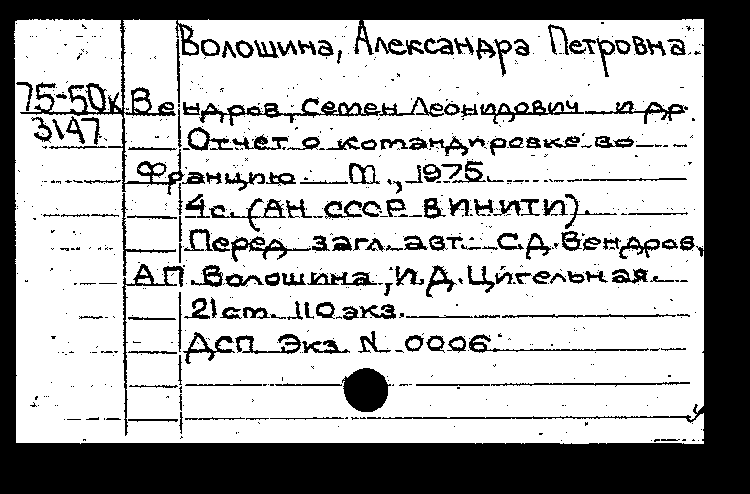 Волошина, Александра Петровна.
75-50к Вендров, Семен Леонидович и др.
3147 Отчет о командировке во
Францию. М., 1975.
4с. (АН СССР ВИНИТИ).
Перед загл. авт.: С.Д. Вендров,
А.П. Волошина, И.Д. Цигельная.
21 ст. 110 экз.
ДСП Экз. N 0006.